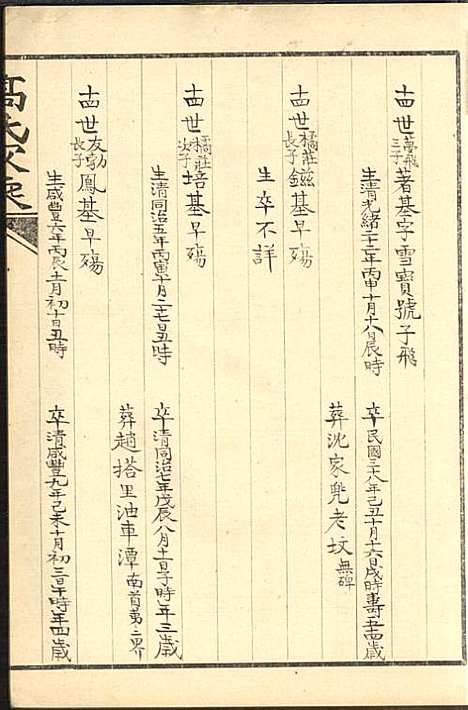 十四世夢飛三子著基字雪寶號子飛
生清光緒二十二年丙申十月十八日辰時 卒民國三十八年己丑十月十六日戌時壽五十四歲
葬沈家兜老坟無碑
十四世橘莊長子鎡基早殤
生卒不詳
十四世橘莊次子培基早殤
生清同治五年丙寅十月二十七日丑時 卒清同治七年戊辰八月十一日子時年三歲
葬趙搭里油車潭南首
十四世友勃長子鳳基早殤
生咸豐六年丙辰十一月初十日丑時 卒清咸豐九年己未十月初三日午時年四歲
高氏家